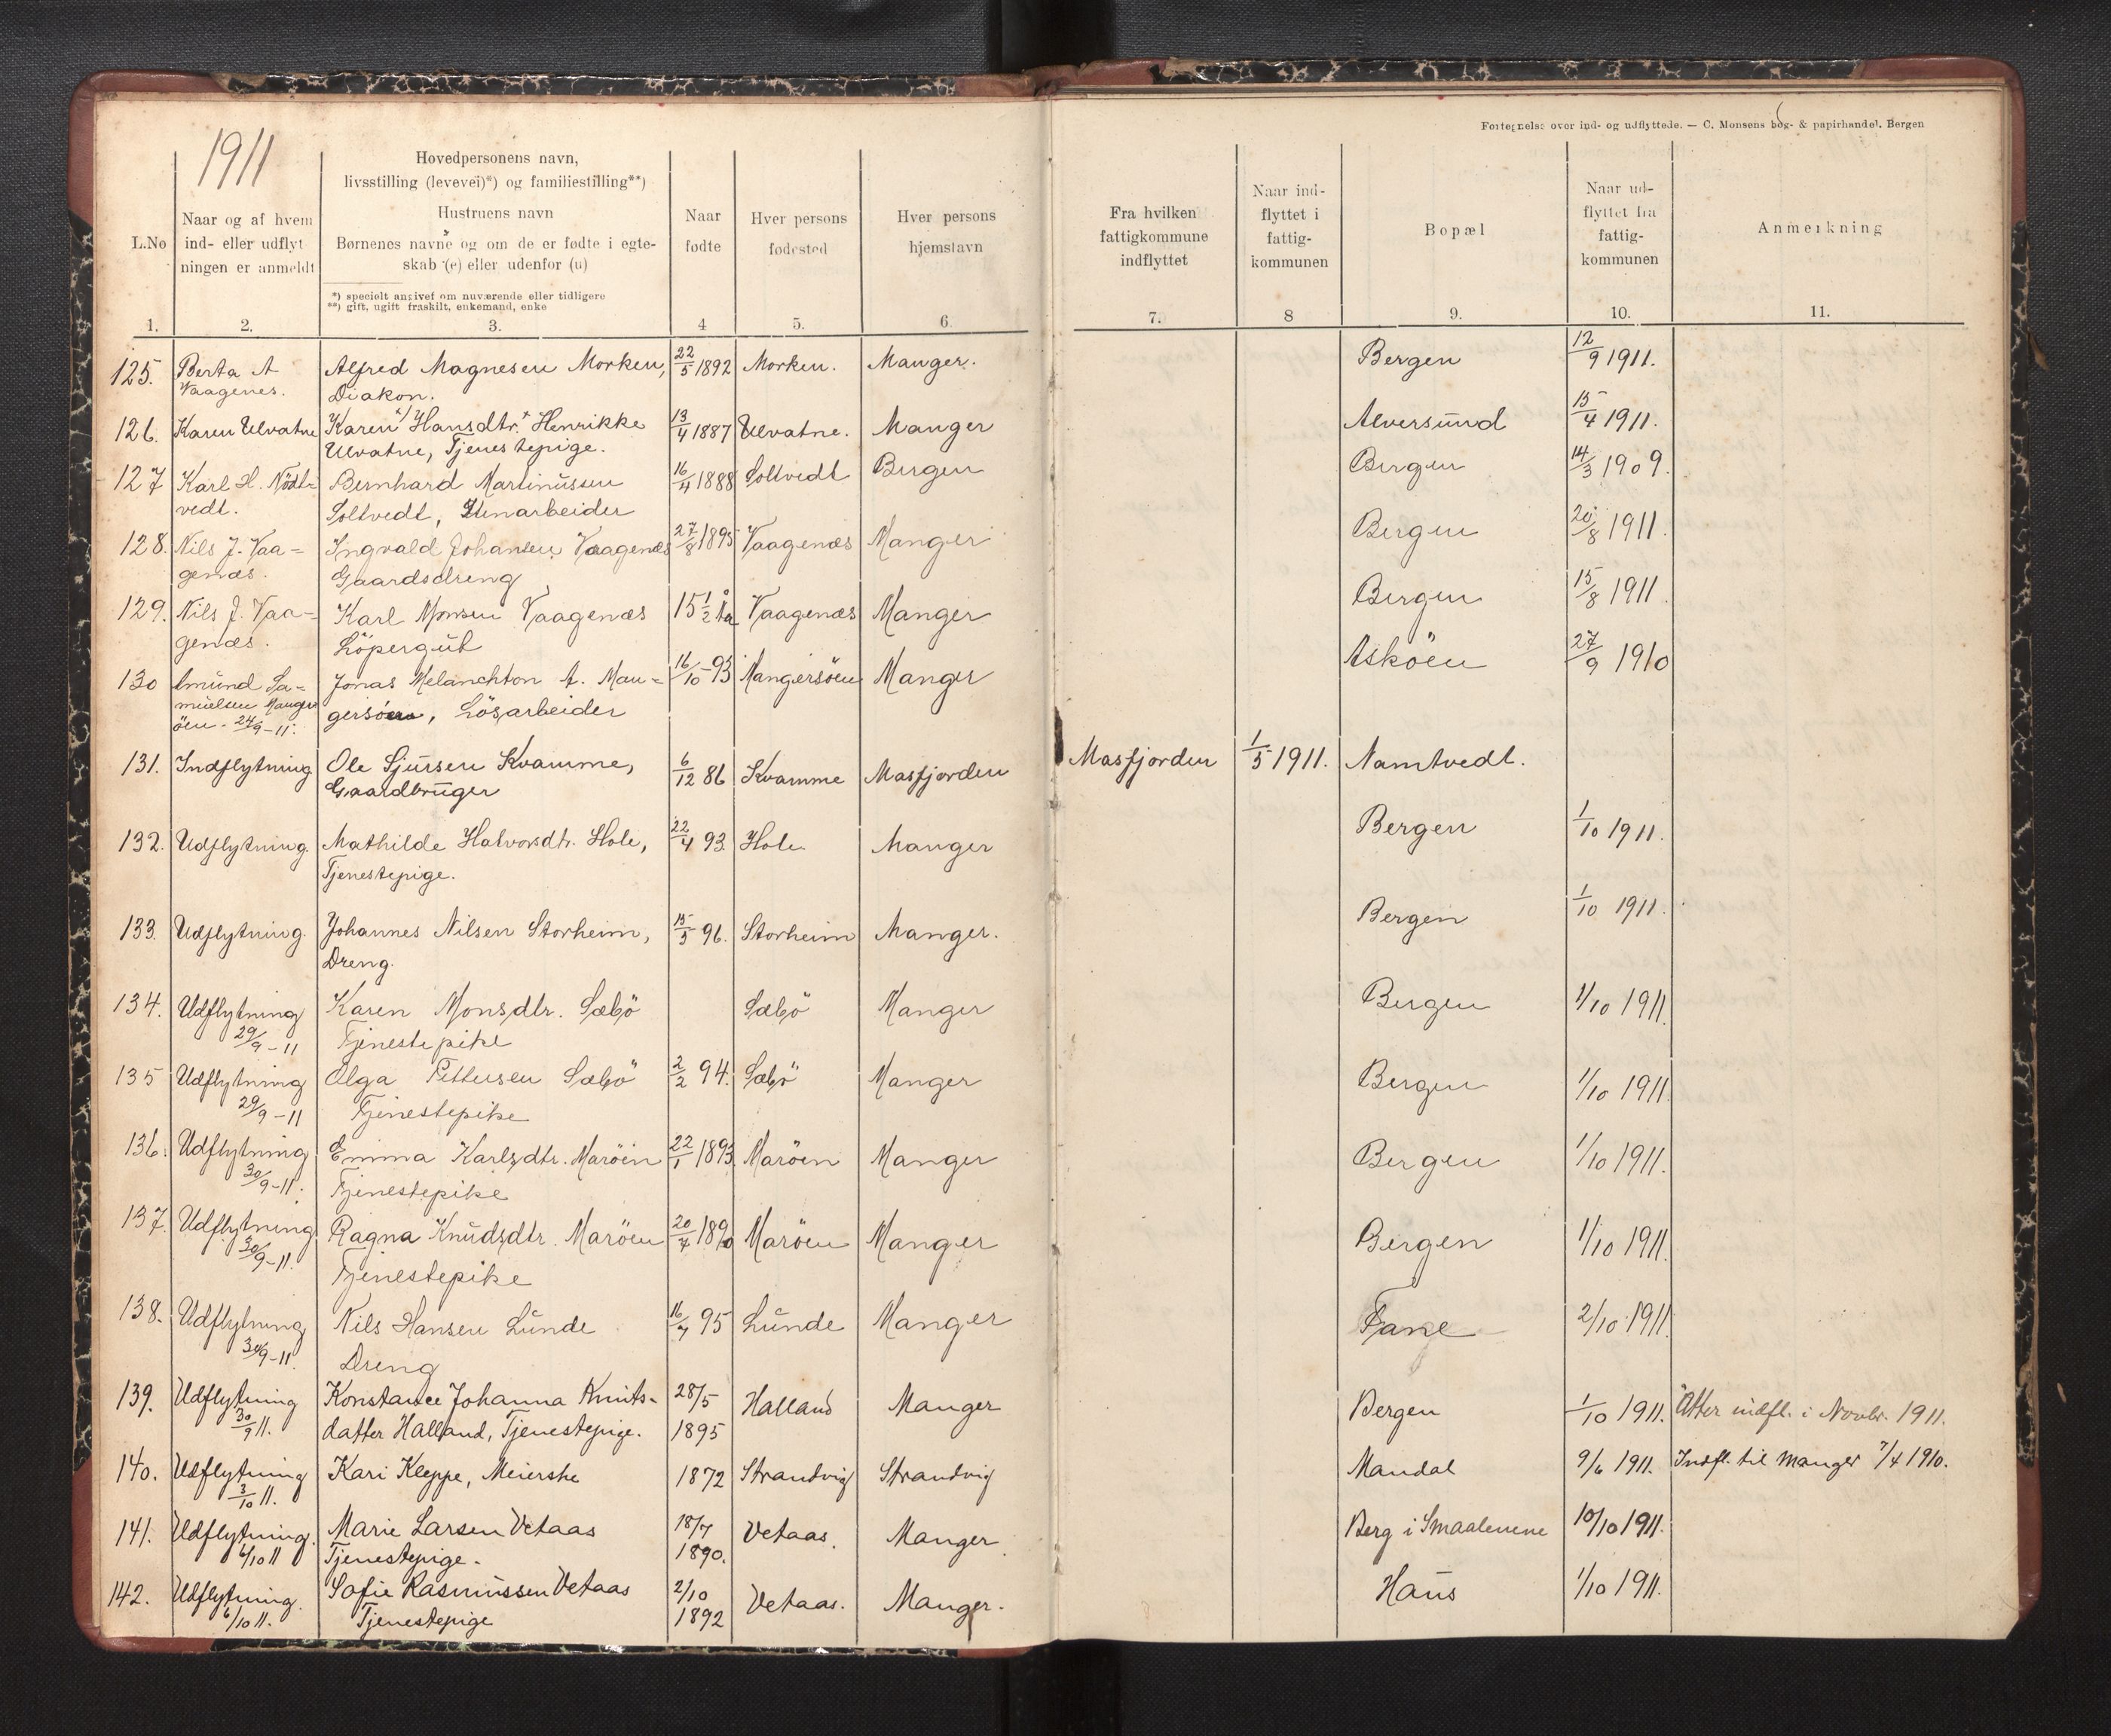 Fortegnelse over ind- og udflyttede. — C. Monsens bog- & papirhandel. Bergen
1911
L.No
1.
Naar og af hvem
ind- eller udflyt
ningen er anmeldt
2.
Hovedpersonens navn,
livsstilling (levevei)*) og familiestilling**)
Hustruens navn
Børnenes navne og om de er fødte i egte-
skab (e) eller udenfor (u)
*) specielt angivet om nuværende eller tidligere
**) gift, ugift fraskilt, enkemand, enke
3.
Naar
fødte
4
Hver persons
fødested
5.
Hver persons
hjemstavn
6.
Fra hvilken
fattigkommune
indflyttet
7.
Naar ind-
flyttet i
fattig-
kommunen
8
Bopæl
9.
Naar ud-
flyttet fra
fattig-
kommunen
10.
Anmerkning
11.
125. Berta A Alfred Magnesen Morken, 22/5 1892 Morken. Manger. Bergen 12/9 1911.
Vaagenes. Diakon.
126. Karen Ulvatne Karen Hansdtr. Henrikke 13/4 1887 Ulvatne. Manger Alversund 15/4 1911.
Ulvatne, Tjenestepige.
127 Karl H. Nödt= Bernhard Martinussen 16/4 1888 Soltvedt Bergen Bergen 14/3 1909.
vedt. Soltvedt, Stenarbeider
128. Nils J. Vaa= Ingvald Johansen Vaagenes 27/8 1895 Vaagenæs Manger Bergen 20/8 1911.
genæs. Gaardsdreng
129. Nils J. Vaa= Karl Monsen Vaagenæs 15 1/2 år Vaagenæs Manger Bergen 15/8 1911.
genæs. Löpergut
130 Amund Sa= Jonas Melanchton A. Man= 16/10-93 Mangersöen Manger Asköen 27/9 1910
muelsen Manger gersöen, Lösarbeider
öen. 24/9-11.
131. Indflytning Ole Sjursen Kvamme, 6/12 86 Kvamme Masfjorden Masfjorden 1/5 1911. Namtvedt.
Gaardbruger
132. Udflytning Mathilde Halvorsdtr. Hole, 22/4 93 Hole Manger Bergen 1/10 1911.
Tjenestepige.
133. Udflytning. Johannes Nilsen Storheim, 15/5 96. Storheim Manger. Bergen 1/10 1911.
Dreng.
134. Udflytning Karen Monsdtr. Sæbö Sæbö Manger Bergen 1/10 1911.
29/9-11 Tjenestepike
135 Udflytning Olga Pettersen Sæbö 2/2 94. Sæbö Manger Bergen 1/10 1911
29/9-11 Tjenestepike
136. Udflytning Emma Karlsdtr. Maröen 22/1 1893. Maröen Manger Bergen 1/10 1911.
30/9-11. Tjenestepike
137. Udflytning Ragna Knudsdtr. Maröen 20/7 1890 Maröen Manger Bergen 1/10 1911.
30/9-11. Tjenestepike
138. Udflytning Nils Hansen Lunde 16/7 95 Lunde Manger Fane 2/10 1911
30/9-11. Dreng
139. Udflytning Konstance Johanna Knuts- 28/5 Halland Manger Bergen 1/10 1911. Atter indfl. i Novbr. 1911.
30/9 11. datter Halland, Tjenestepige. 1895
140. Udflytning Kari Kleppe, Meierske 1872 Strandvig Strandvig Mandal 9/6 1911. Indfl. til Manger 7/4 1910.
3/10 11.
141. Udflytning. Marie Larsen Vetaas 18/7 Vetaas. Manger. Berg i Smaalenene 10/10 1911.
6/10 11 Tjenestepige. 1890.
142. Udflytning. Sofie Rasmussen Vetaas 2/10 Vetaas. Manger. Haus 1/10 1911.
6/10 11. Tjenestepige 1892